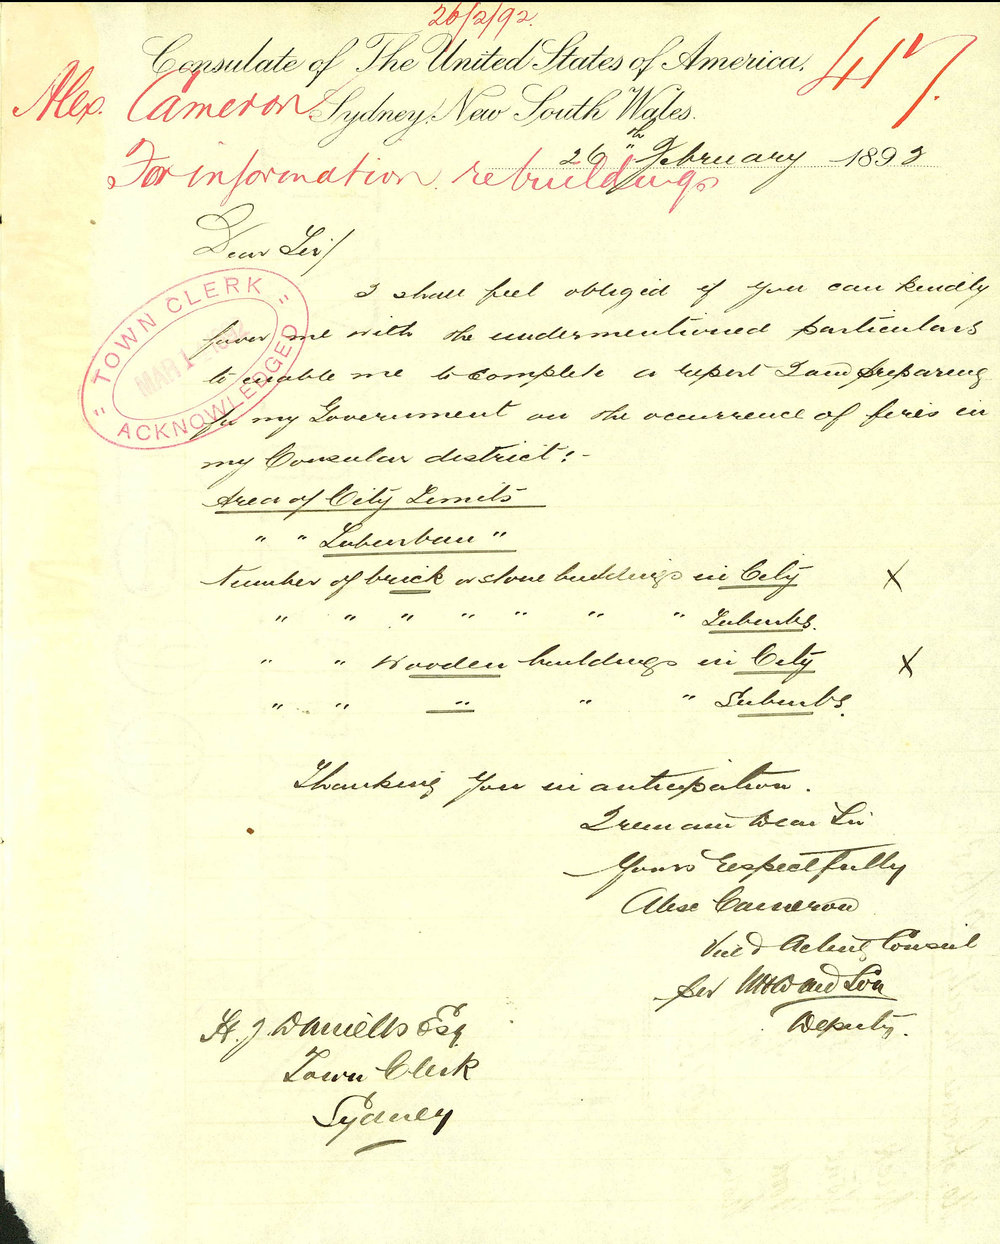 26/2/92.
Consulate of The United States of America,
417.
Alex. Cameron
Sydney, New South Wales.
26th February 1892
For information re buildings
Dear Sir/
I shall feel obliged if you can kindly
favor me with the undermentioned particulars
to enable me to complete a report I am preparing
for my Government on the occurrence of fires in
my Consular district:-
TOWN CLERK
MAR 1 1892
ACKNOWLEDGED
Area of City Limits
" " Suburban "
Number of brick or stone buildings in City X
" " " " " " " Suburbs.
" " Wooden buildings in City X
" " " " " Suburbs.
Thanking you in anticipation.
I remain Dear Sir
Yours respectfully
Alex Cameron
Vice & Acting Consul
per
Deputy.
H. J. Daniells Esq
Town Clerk
Sydney